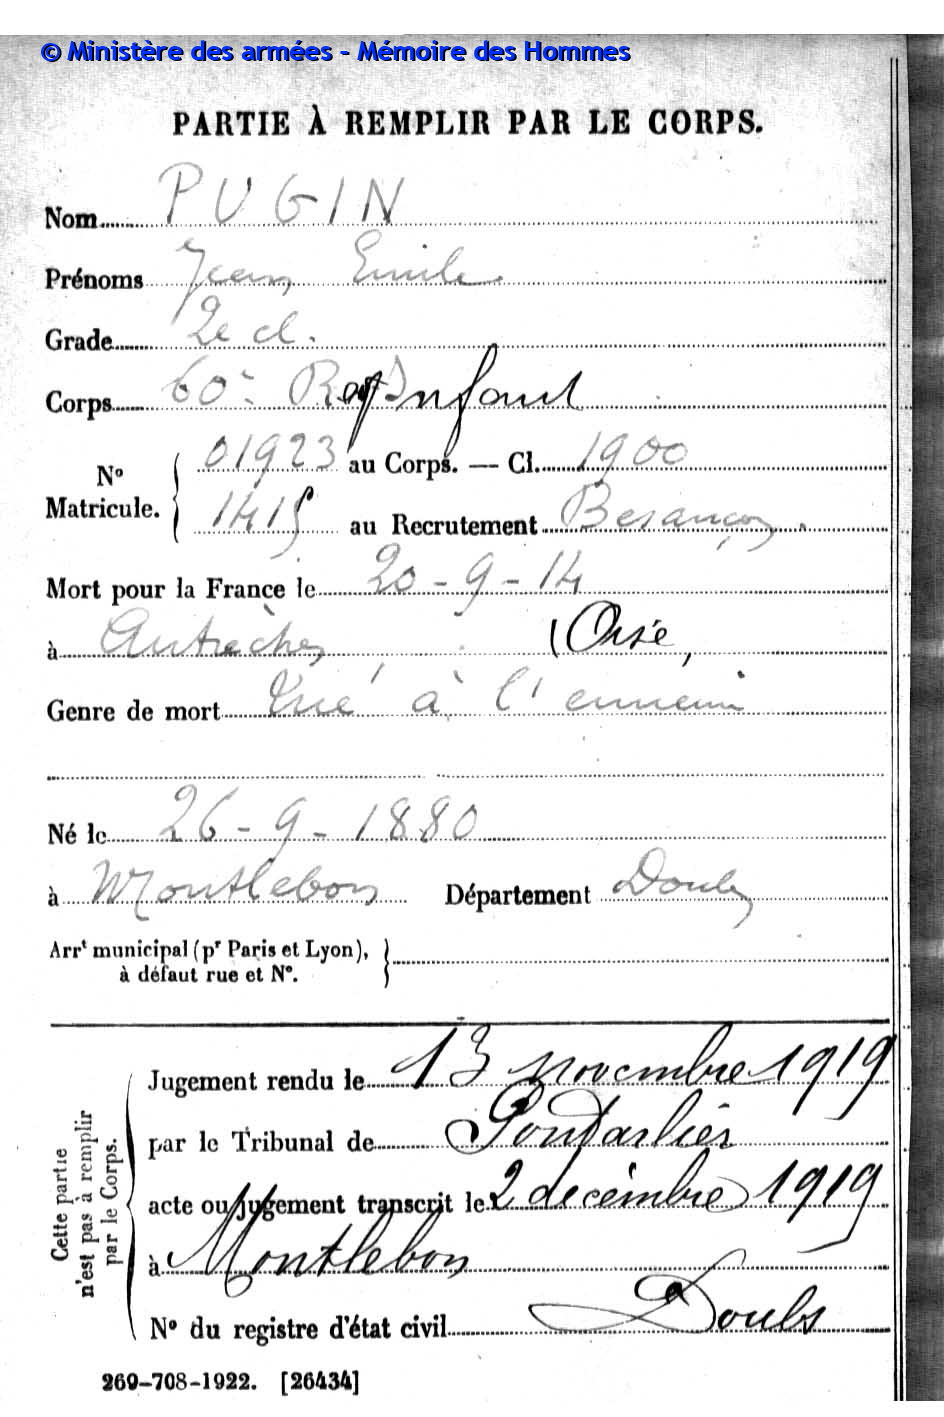 © Ministère des armées - Mémoire des Hommes
PARTIE À REMPLIR PAR LE CORPS.
Nom PUGIN
Prénoms Jean Emile
Grade 2e cl.
Corps 60e Reg Infant
N° Matricule. 01923 au Corps. — Cl. 1900
1415 au Recrutement Besançon.
Mort pour la France le 20-9-14
à Autrèches (Oise,
Genre de mort tué à l'ennemi
Né le 26-9-1880
à Montlebon Département Doubs
Arrt municipal (pr Paris et Lyon),
à défaut rue et N°.
Cette partie
n'est pas à remplir
par le Corps.
Jugement rendu le 13 novembre 1919
par le Tribunal de Pontarlier
acte ou jugement transcrit le 2 décembre 1919
à Montlebon
N° du registre d'état civil Doubs
269-708-1922. [26434]